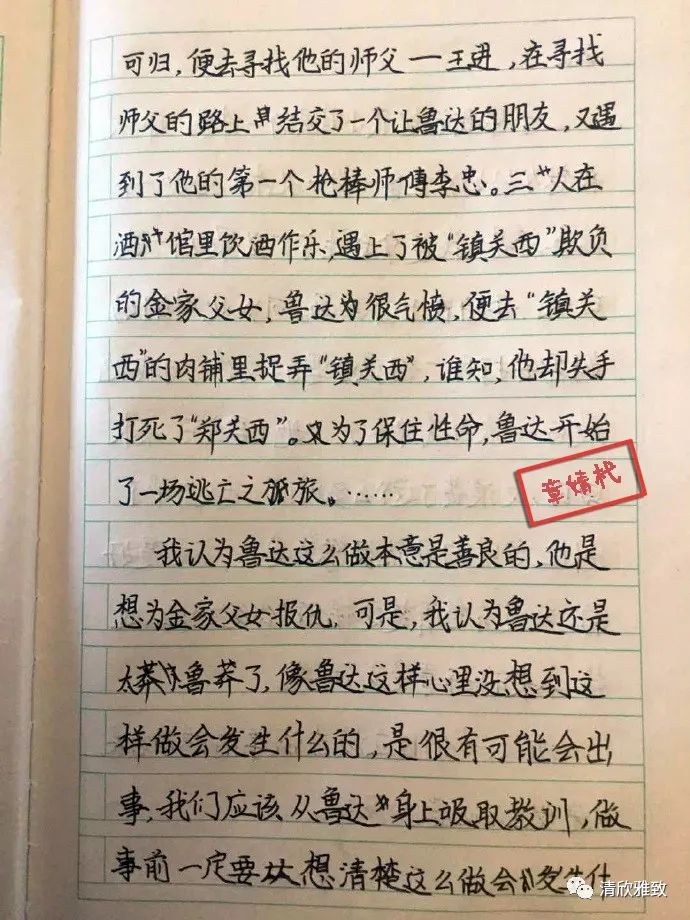 可归,便去寻找他的师父一王进,在寻找
师父的路上结交了一个让鲁达的朋友,又遇
到了他的第一个枪棒师傅李忠。三人在
酒馆里饮酒作乐,遇上了被“镇关西”欺负
的金家父女,鲁达很气愤,便去“镇关
西”的肉铺里捉弄“镇关西”,谁知,他却失手
打死了“郑关西”。为了保住性命,鲁达开始
了一场逃亡之旅。……
章情代
我认为鲁达这么做本意是善良的,他是
想为金家父女报仇,可是,我认为鲁达还是
太鲁莽了,像鲁达这样心里没想到这
样做会发生什么的,是很有可能会出
事,我们应该从鲁达身上吸取教训,做
事前一定要想清楚这么做会发生什
清欣雅致